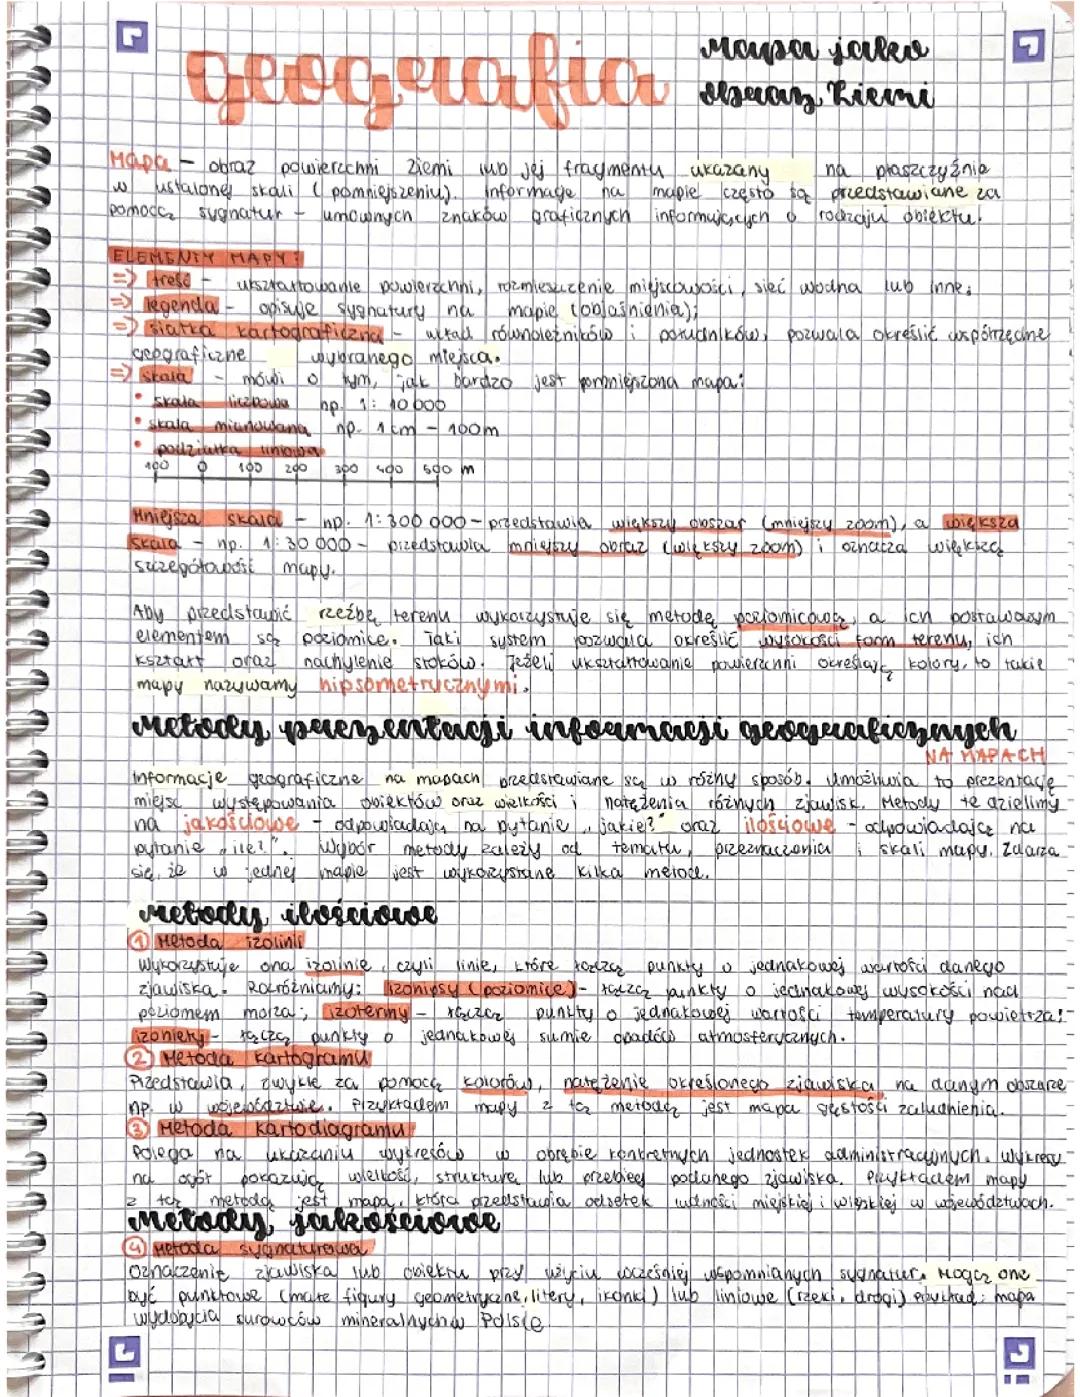 geografia
Mapa jako
obraz Ziemi
Mapa - obraz powierzchni Ziemi lub jej fragmentu ukazany na płaszczyźnie
w ustalonej skali (pomniejszeniu). Informacje na mapie często są przedstawiane za
pomocą sygnatur - umownych znaków graficznych informujących o rodzaju obiektu.
ELEMENTY MAPY:
=> treść - ukształtowanie powierzchni, rozmieszczenie miejscowości, sieć wodna lub inne;
=> legenda - opisuje sygnatury na mapie (objaśnienia);
=> siatka kartograficzna - układ równoleżników i południków, pozwala określić współrzędne
geograficzne wybranego miejsca.
=> skala - mówi o tym, jak bardzo jest pomniejszona mapa:
• skala liczbowa np. 1:10 000
• skala mianowana np. 1 cm - 100m
• podziałka liniowa
100 0 100 200 300 400 500 m
Mniejsza skala - np. 1:300 000 - przedstawia większy obszar (mniejszy zoom), a większa
skala - np. 1:30 000 - przedstawia mniejszy obraz (większy zoom) i oznacza większą
szczegółowość mapy.
Aby przedstawić rzeźbę terenu wykorzystuje się metodę poziomicową, a ich postawowym
elementem są poziomice. Taki system pozwala określić wysokości form terenu, ich
kształt oraz nachylenie stoków. Jeżeli ukształtowanie powierzchni określają kolory, to takie
mapy nazywamy hipsometrycznymi.
Metody prezentacji informacji geograficznych
NA MAPACH
Informacje geograficzne na mapach przedstawiane są w różny sposób. Umożliwia to prezentację
miejsc występowania obiektów oraz wielkości i natężenia różnych zjawisk. Metody te dzielimy
na jakościowe - odpowiadają na pytanie „jakie?" oraz ilościowe - odpowiadające na
pytanie „ile?". Wybór metody zależy od tematu, przeznaczenia i skali mapy. Zdarza
się, że w jednej mapie jest wykorzystane kilka metod.
Metody ilościowe
① Metoda izolinii
Wykorzystuje ona izolinie, czyli linie, które łączą punkty o jednakowej wartości danego
zjawiska. Rozróżniamy: izohipsy (poziomice) - łączą punkty o jednakowej wysokości nad
poziomem morza; izotermy - łączą punkty o jednakowej wartości temperatury powietrza;
izohiety - łączą punkty o jednakowej sumie opadów atmosferycznych.
② Metoda kartogramu
Przedstawia, zwykle za pomocą kolorów, natężenie określonego zjawiska na danym obszarze
np. w województwie. Przykładem mapy z tą metodą jest mapa gęstości zaludnienia.
③ Metoda kartodiagramu
Polega na ukazaniu wykresów w obrębie konkretnych jednostek administracyjnych. Wykresy
na ogół pokazują wielkość, strukturę lub przebieg podanego zjawiska. Przykładem mapy
z tą metodą jest mapa, która przedstawia odsetek ludności miejskiej i wiejskiej w województwach.
Metody jakościowe
④ Metoda sygnaturowa
Oznaczenie zjawiska lub obiektu przy użyciu wcześniej wspomnianych sygnatur. Mogą one
być punktowe (małe figury geometryczne, litery, ikonki) lub liniowe (rzeki, drogi) Przykład: mapa
wydobycia surowców mineralnych w Polsce